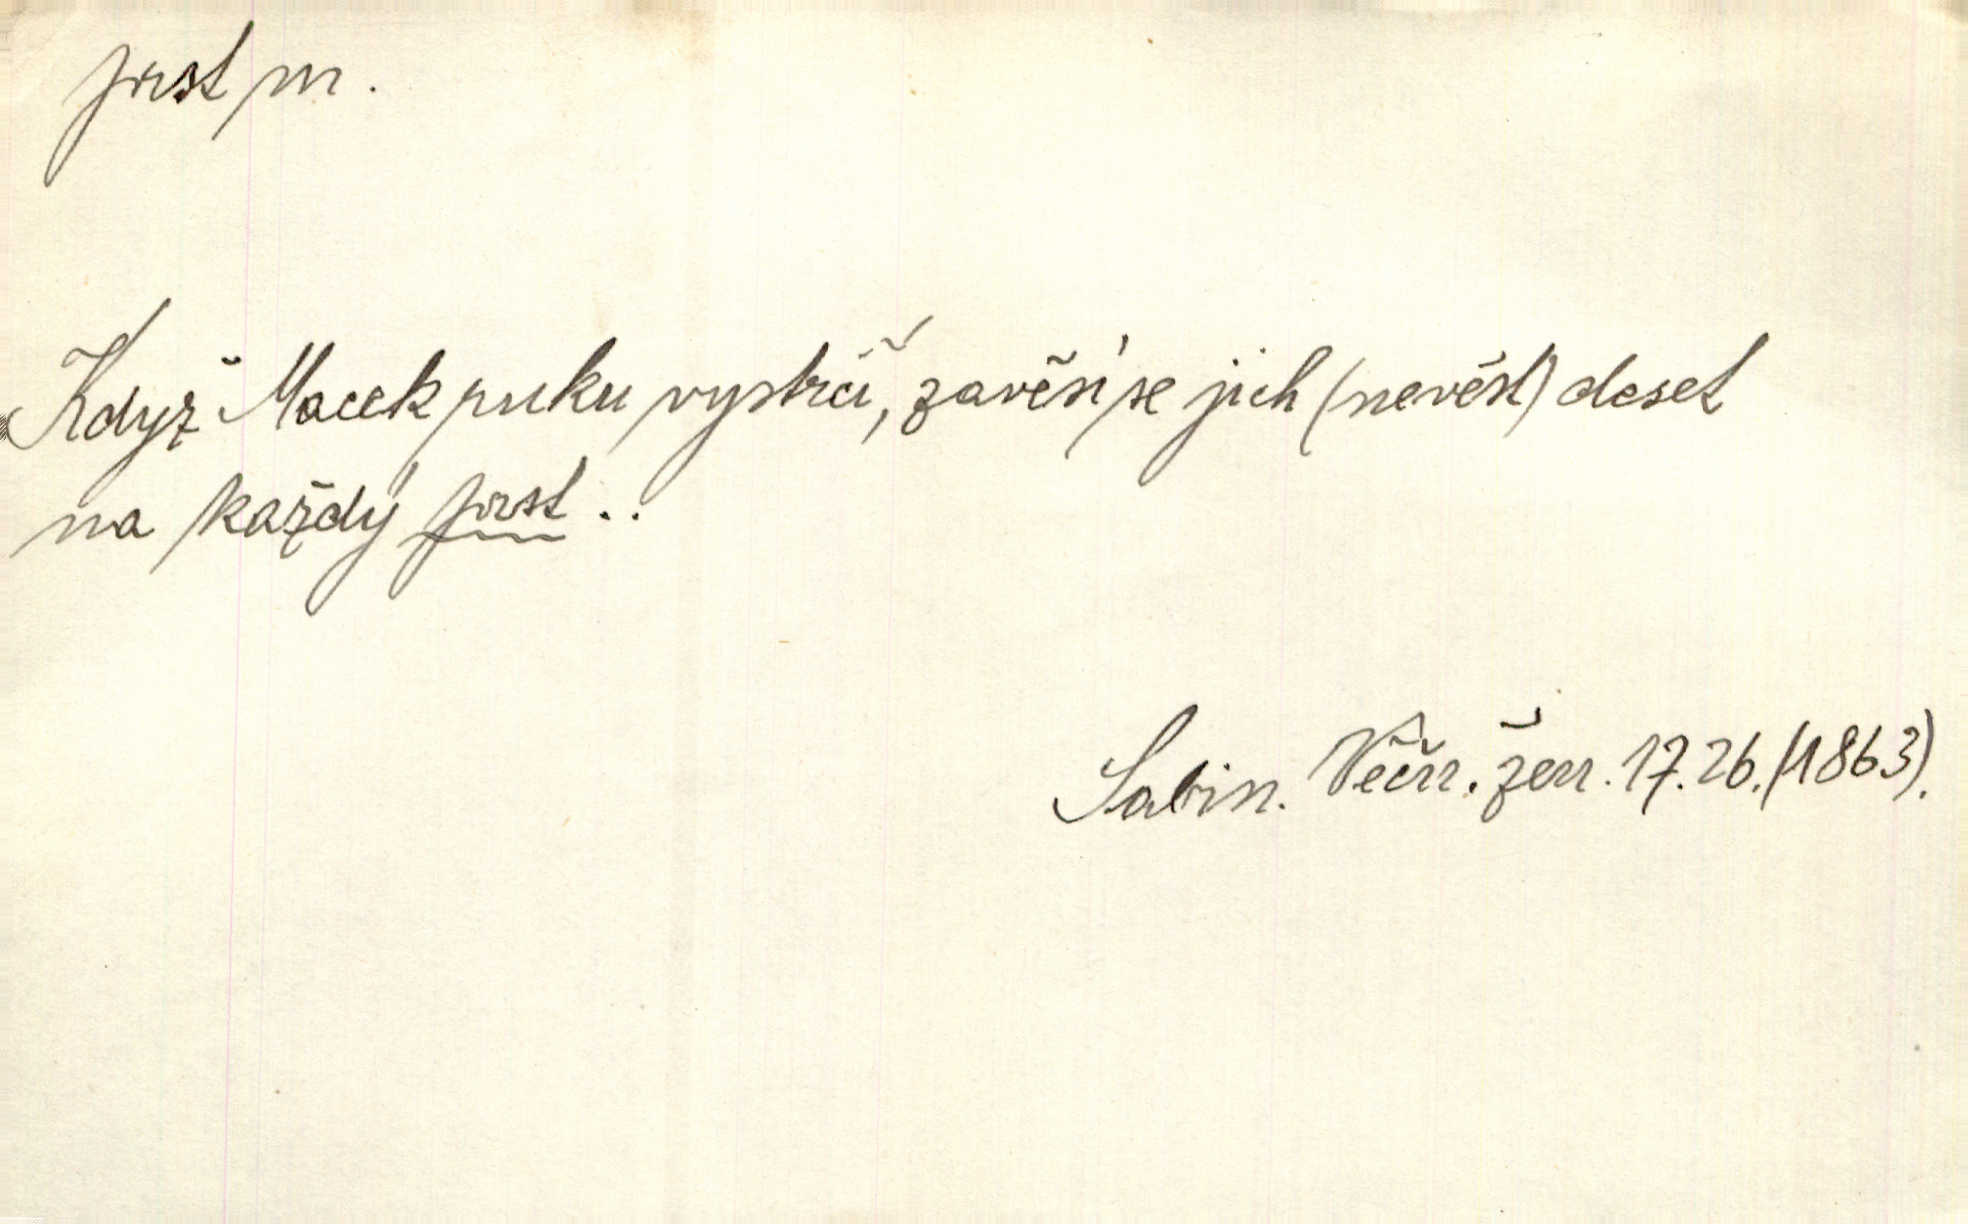 prst m.
Když Macek ruku vystrčí, zavěsí se jich (nevěst) deset
na každý prst ..
Sabin. Věčn. žen. 17.26.(1863).